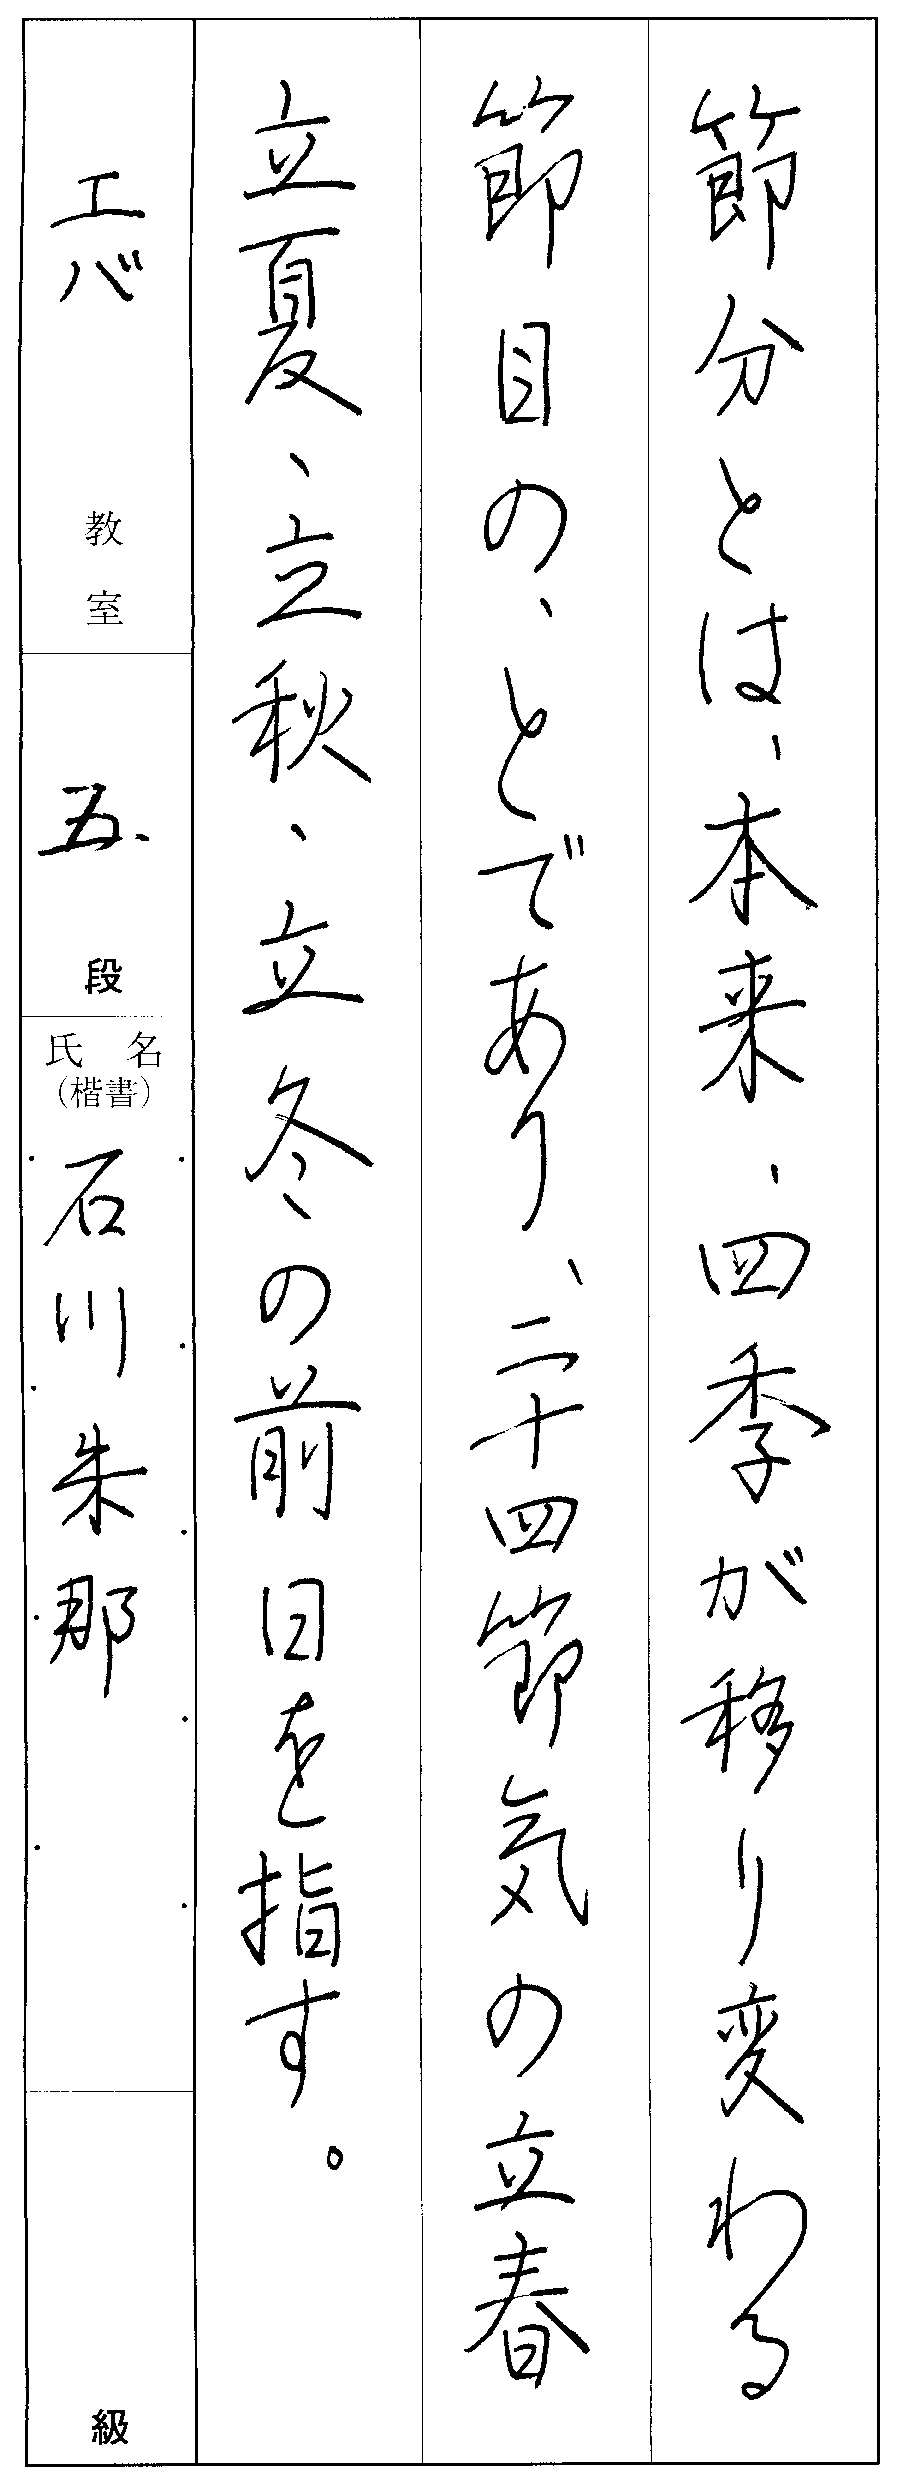 節分とは、本来、四季が移り変わる
節目の、とであり、二十四節気の立春
立夏、立秋、立冬の前日を指す。
エバ 教室
五 段
氏名
(楷書)
石川朱那
級